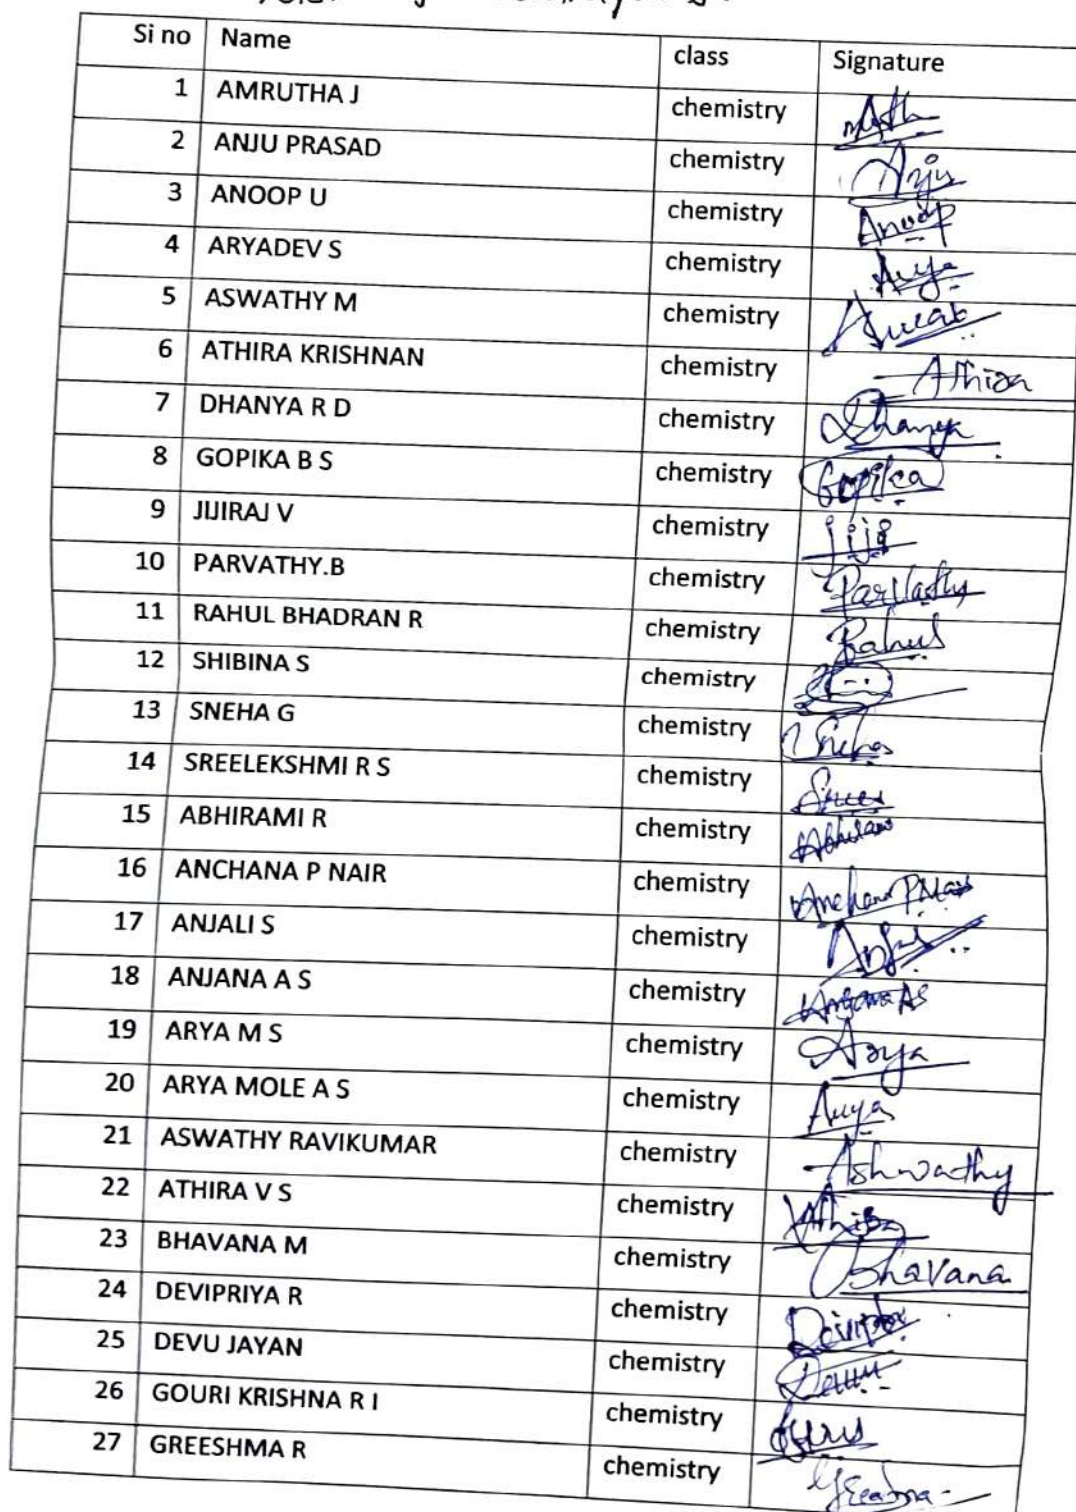 Si no Name class Signature
1 AMRUTHA J chemistry
2 ANJU PRASAD chemistry Anju
3 ANOOP U chemistry Anoop
4 ARYADEV S chemistry Arya
5 ASWATHY M chemistry
6 ATHIRA KRISHNAN chemistry Athira
7 DHANYA R D chemistry Dhanya
8 GOPIKA B S chemistry Gopika
9 JIJIRAJ V chemistry jiji
10 PARVATHY.B chemistry Parvathy
11 RAHUL BHADRAN R chemistry Rahul
12 SHIBINA S chemistry
13 SNEHA G chemistry Sneha
14 SREELEKSHMI R S chemistry Sree
15 ABHIRAMI R chemistry
16 ANCHANA P NAIR chemistry Anchana P Nair
17 ANJALI S chemistry
18 ANJANA A S chemistry Anjana AS
19 ARYA M S chemistry Arya
20 ARYA MOLE A S chemistry Arya
21 ASWATHY RAVIKUMAR chemistry Ashwathy
22 ATHIRA V S chemistry Athira
23 BHAVANA M chemistry Bhavana
24 DEVIPRIYA R chemistry
25 DEVU JAYAN chemistry Devu
26 GOURI KRISHNA R I chemistry
27 GREESHMA R chemistry